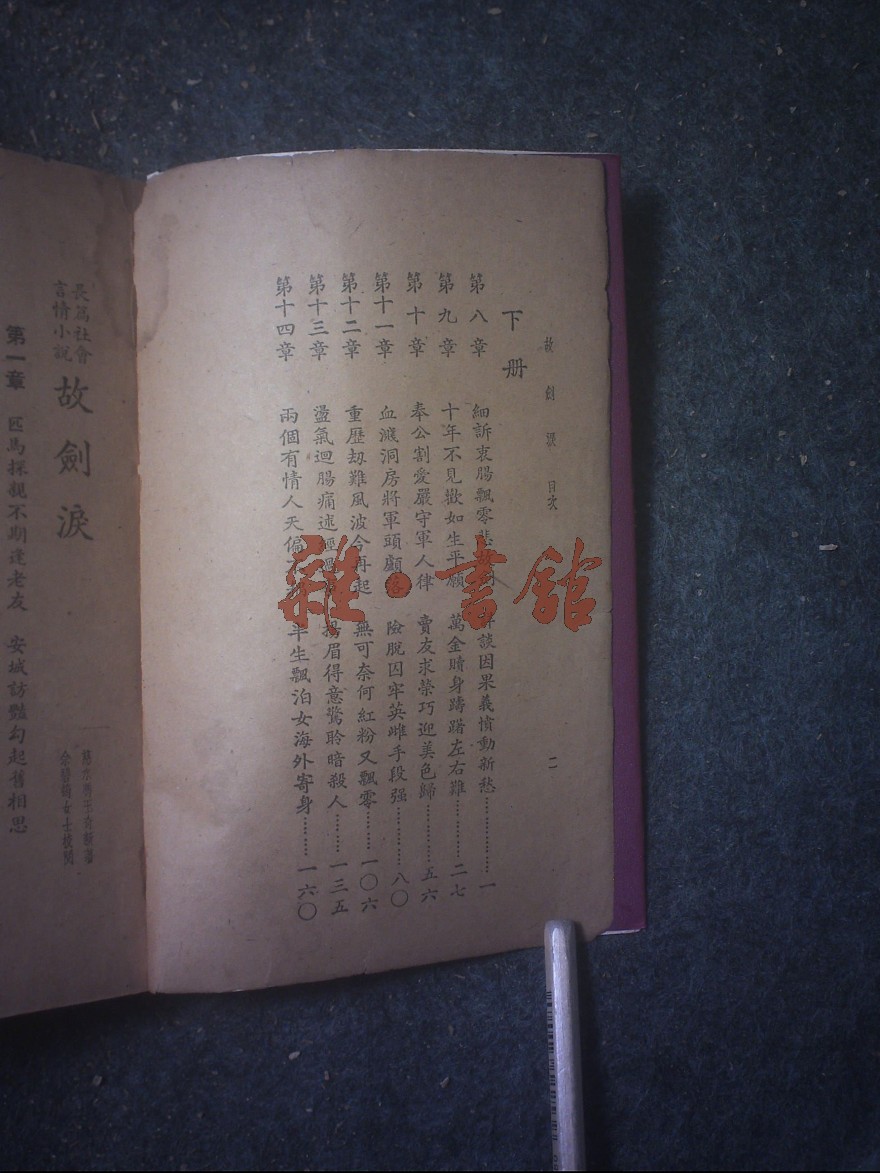 故劍淚 目次 二
下册
第八章 細訴衷腸飄零 談因果義憤動新愁 一
第九章 十年不見歡如生平願 萬金購身躊躇左右難 二七
第十章 奉公割愛嚴守軍人律 賣友求榮巧迎美色歸 五六
第十一章 血濺洞房將軍頭顱 險脫囚牢英雌手段强 八〇
第十二章 重歷劫難風波今再起 無可奈何紅粉又飄零 一〇六
第十三章 盪氣迴腸痛述 揚眉得意驚聆暗殺人 一三五
第十四章 兩個有情人天偏 半生飄泊女海外寄身 一六〇
雜·書館
客
長篇社會
言情小說
故劍淚
女士校閱
第一章 匹馬探親不期逢老友 安城訪豔勾起舊相思